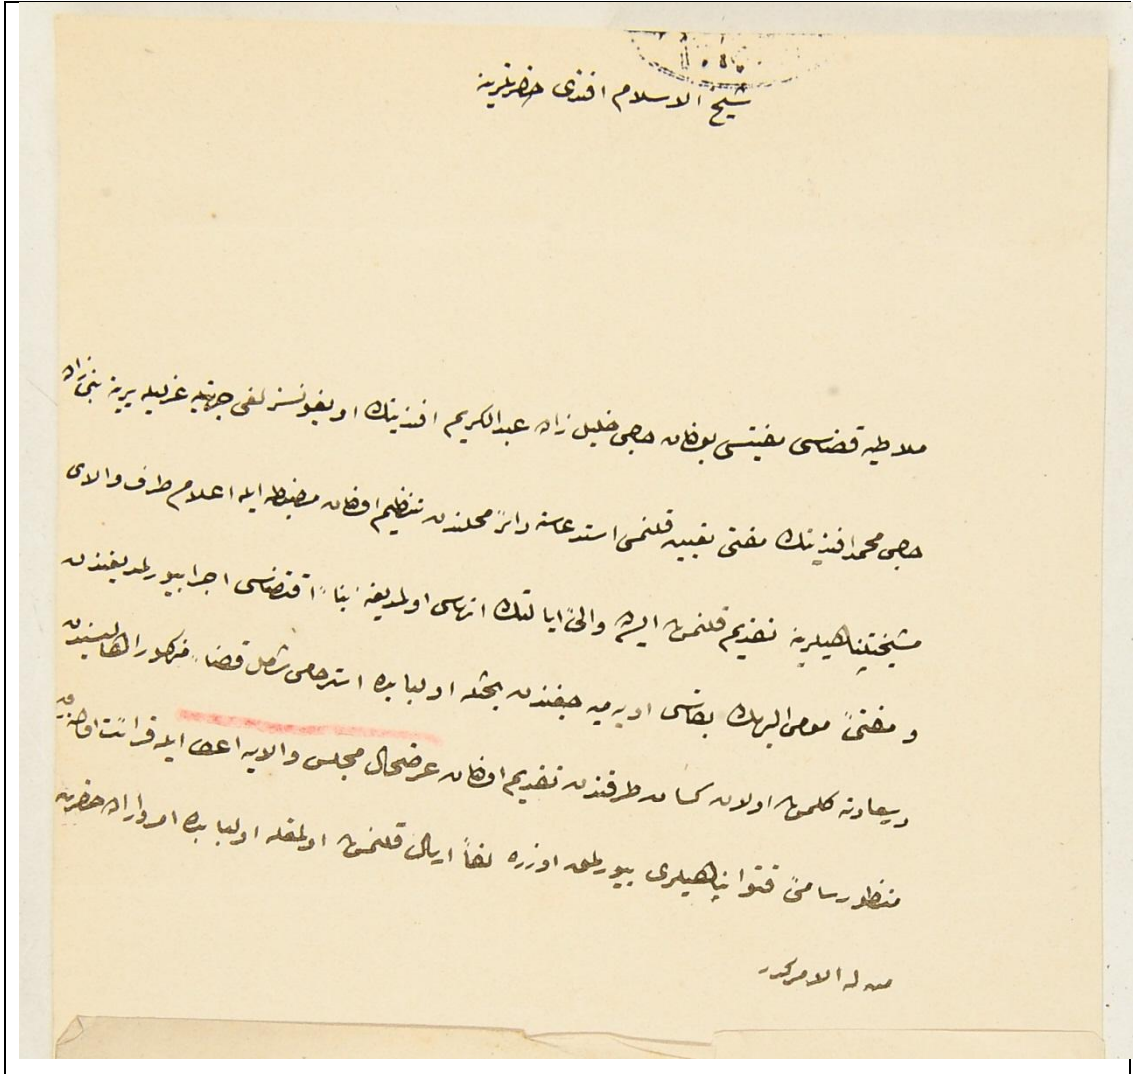 شيخ الاسلام افندى حضرتلرينه
ملاطيه قضاسى مفتيسى بولنان حاجى خليل زاده عبدالكريم افندينك اويغونسزلغى جهتيله عزليله يرينه زاده
حاجى محمد افندينك مفتى تعيين قلنمسى استدعاسنه دائر محلندن تنظيم اولنان مضبطه ايله اعلام طرف والاى
مشيختپناهيلرينه تقديم قلنمش ايسه ده والئ ايالتك انهاسى اولمديغنه بناءً اقتضاسى اجرا بيورلمديغندن
و مفتئ مومى اليهك بقاسى اويه ميه جغندن بحثله اولبابده استرحامى شامل قضاء مذكور اهاليسندن
درسعادته كلمش اولان كسان طرفندن تقديم اولنان عرضحال مجلس والايه اعطا ايله قرائت اولنه رق
منظور سامئ فتوا پناهيلرى بيورلمق اوزره لفاً ارسال قلنمش اولمغله اولبابده امر و اراده حضرت
من له الامركدر